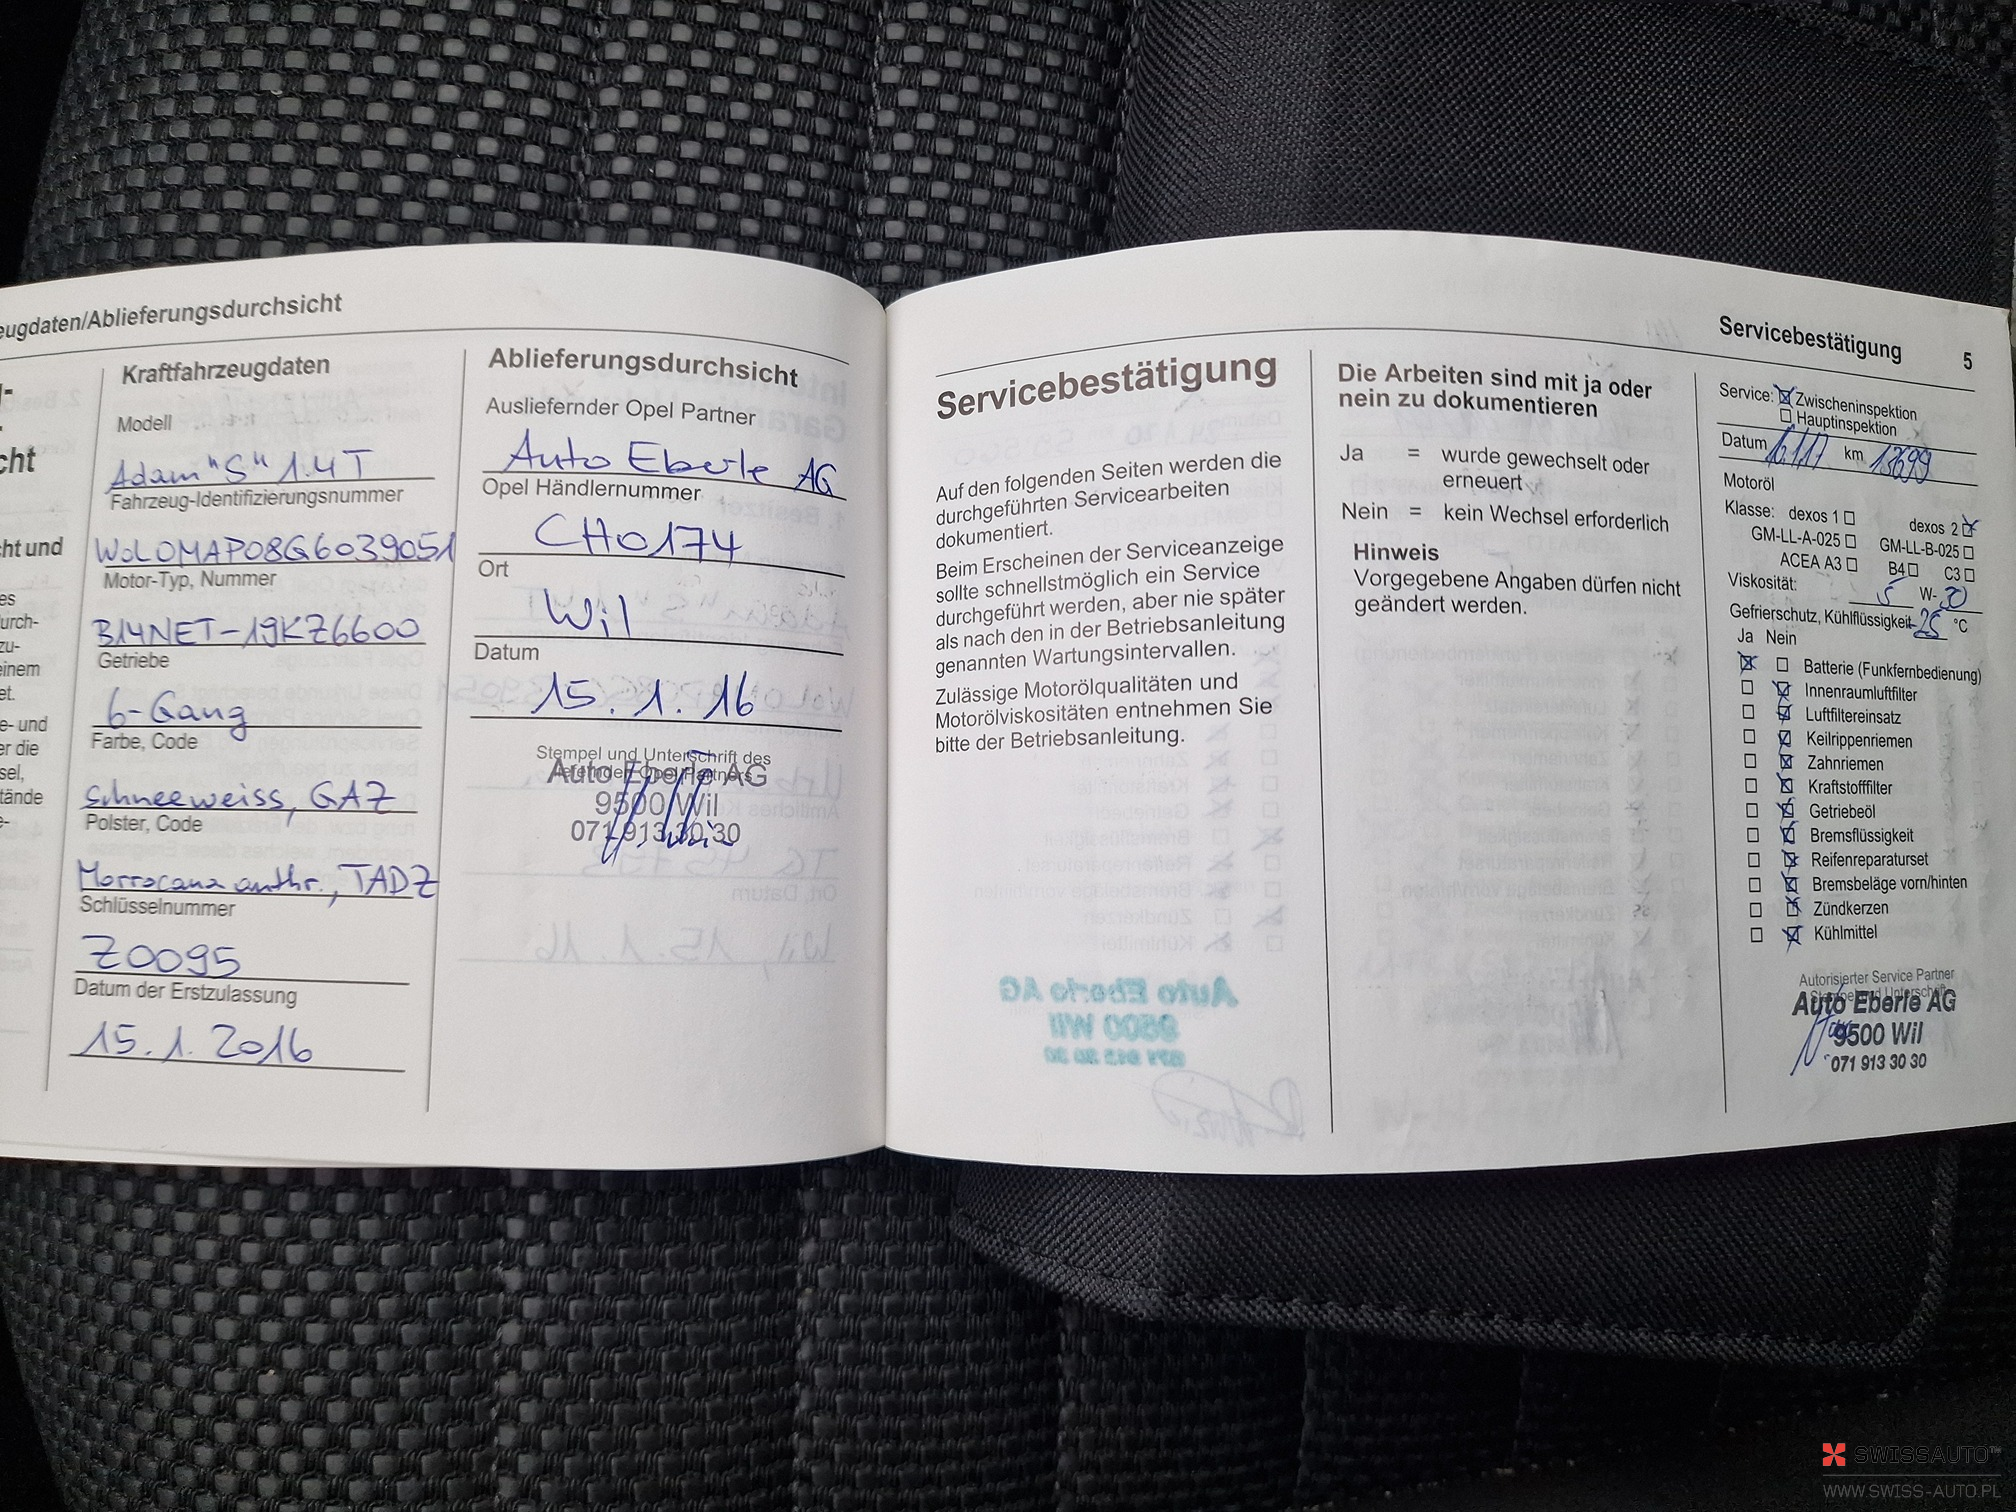 eugdaten/Ablieferungsdurchsicht
cht
ht und
es
urch-
zu-
einem
et.
e- und
er die
sel,
tände
e-
Kraftfahrzeugdaten
Modell
Adam "S" 1.4 T
Fahrzeug-Identifizierungsnummer
W0L0MAP08G6039051
Motor-Typ, Nummer
B14NET-19KZ6600
Getriebe
6-Gang
Farbe, Code
Schneeweiss, GAZ
Polster, Code
Morrocana anthr., TADZ
Schlüsselnummer
Z0095
Datum der Erstzulassung
15.1.2016
Ablieferungsdurchsicht
Ausliefernder Opel Partner
Auto Eberle AG
Opel Händlernummer
CH0174
Ort
Wil
Datum
15.1.16
Stempel und Unterschrift des
liefernden Opel Partners
Auto Eberle AG
9500 Wil
071 913 30 30
Servicebestätigung 5
Servicebestätigung
Auf den folgenden Seiten werden die
durchgeführten Servicearbeiten
dokumentiert.
Beim Erscheinen der Serviceanzeige
sollte schnellstmöglich ein Service
durchgeführt werden, aber nie später
als nach den in der Betriebsanleitung
genannten Wartungsintervallen.
Zulässige Motorölqualitäten und
Motorölviskositäten entnehmen Sie
bitte der Betriebsanleitung.
Auto Eberle AG
9500 Wil
071 913 30 30
Die Arbeiten sind mit ja oder
nein zu dokumentieren
Ja = wurde gewechselt oder
erneuert
Nein = kein Wechsel erforderlich
Hinweis
Vorgegebene Angaben dürfen nicht
geändert werden.
Service: Zwischeninspektion
Hauptinspektion
Datum 16.1.17 km 13699
Motoröl
Klasse: dexos 1 dexos 2
GM-LL-A-025 GM-LL-B-025
ACEA A3 B4 C3
Viskosität: 5 W- 30
Gefrierschutz, Kühlflüssigkeit -25 °C
Ja Nein
Batterie (Funkfernbedienung)
Innenraumluftfilter
Luftfiltereinsatz
Keilrippenriemen
Zahnriemen
Kraftstofffilter
Getriebeöl
Bremsflüssigkeit
Reifenreparaturset
Bremsbeläge vorn/hinten
Zündkerzen
Kühlmittel
Autorisierter Service Partner
Stempel und Unterschrift
Auto Eberle AG
9500 Wil
071 913 30 30
SWISSAUTO™
WWW.SWISS-AUTO.PL